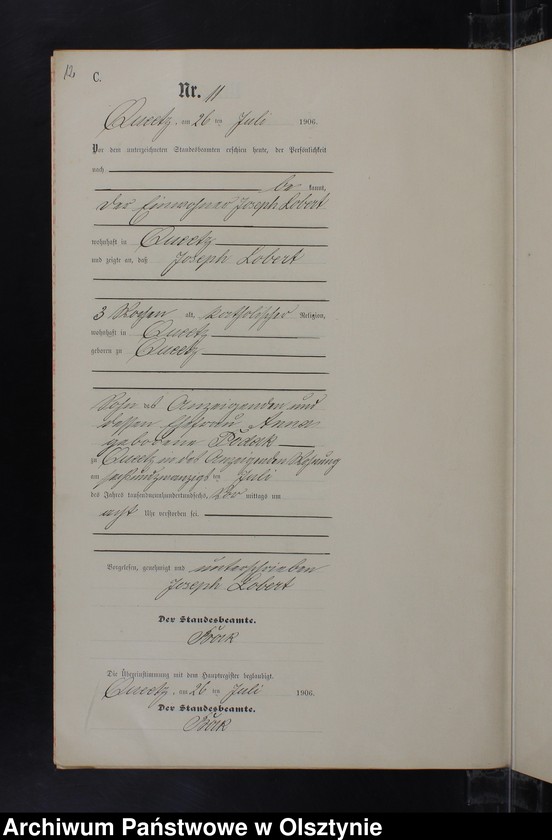 12
C.
Nr. 11
Queetz, am 26 ten Juli 1906.
Vor dem unterzeichneten Standesbeamten erschien heute, der Persönlichkeit
nach
be kannt,
der Einwohner Joseph Lobert
wohnhaft in Queetz
und zeigte an, daß Joseph Lobert
3 Wochen alt, katholischer Religion,
wohnhaft in Queetz
geboren zu Queetz
Sohn des Anzeigenden und
dessen Ehefrau Anna
geborene
zu Queetz in des Anzeigenden Wohnung
am sechsundzwanzigsten Juli
des Jahres tausendneunhundertundsechs, Vor mittags um
acht Uhr verstorben sei.
Vorgelesen, genehmigt und unterschrieben
Joseph Lobert
Der Standesbeamte.
Die Übereinstimmung mit dem Hauptregister beglaubigt.
Queetz, am 26 ten Juli 1906.
Der Standesbeamte.
Archiwum Państwowe w Olsztynie